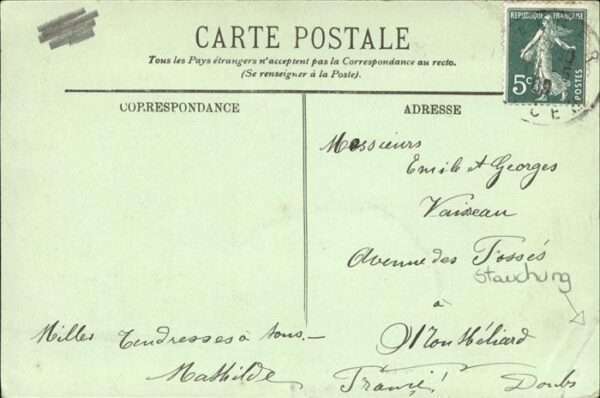 CARTE POSTALE
Tous les Pays étrangers n'acceptent pas la Correspondance au recto.
(Se renseigner à la Poste).
RÉPUBLIQUE FRANÇAISE
5c
POSTES
CORRESPONDANCE
ADRESSE
Messieurs
Emile et Georges
Avenue des Fossés
Stauchung
à
Montbéliard
France! Doubs
Milles tendresses à tous.—
Mathilde